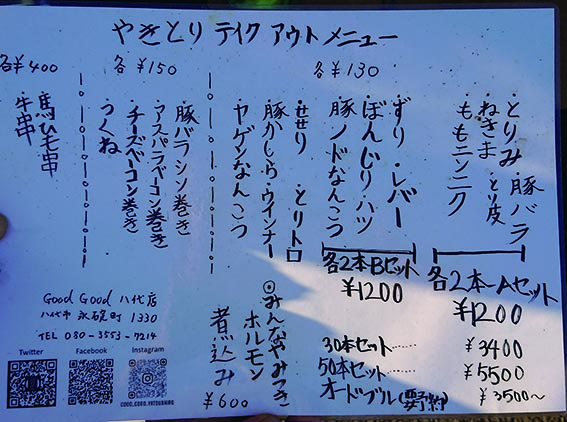 やきとり テイク アウト メニュー
各¥130
・とりみ・豚バラ
・ねぎま・とり皮
・ももニンニク
各2本Aセット
¥1200
・ずり・レバー
・ぼんじり・ハツ
・豚ノドなんこつ
各2本Bセット
¥1200
・せせり・とりトロ
・豚かしら・ウインナー
・ヤゲンなんこつ
各¥150
・豚バラシソ巻き
・アスパラベーコン巻き
・チーズベーコン巻き
・つくね
各¥400
・馬ひも串
・牛串
◎みんなやみつき
ホルモン
煮込み
¥600
30本セット……¥3400
50本セット……¥5500
オードブル(要予約)¥3500〜
Good Good 八代店
八代市 永碇町 1330
TEL 080-3553-7214
Twitter
Facebook
Instagram